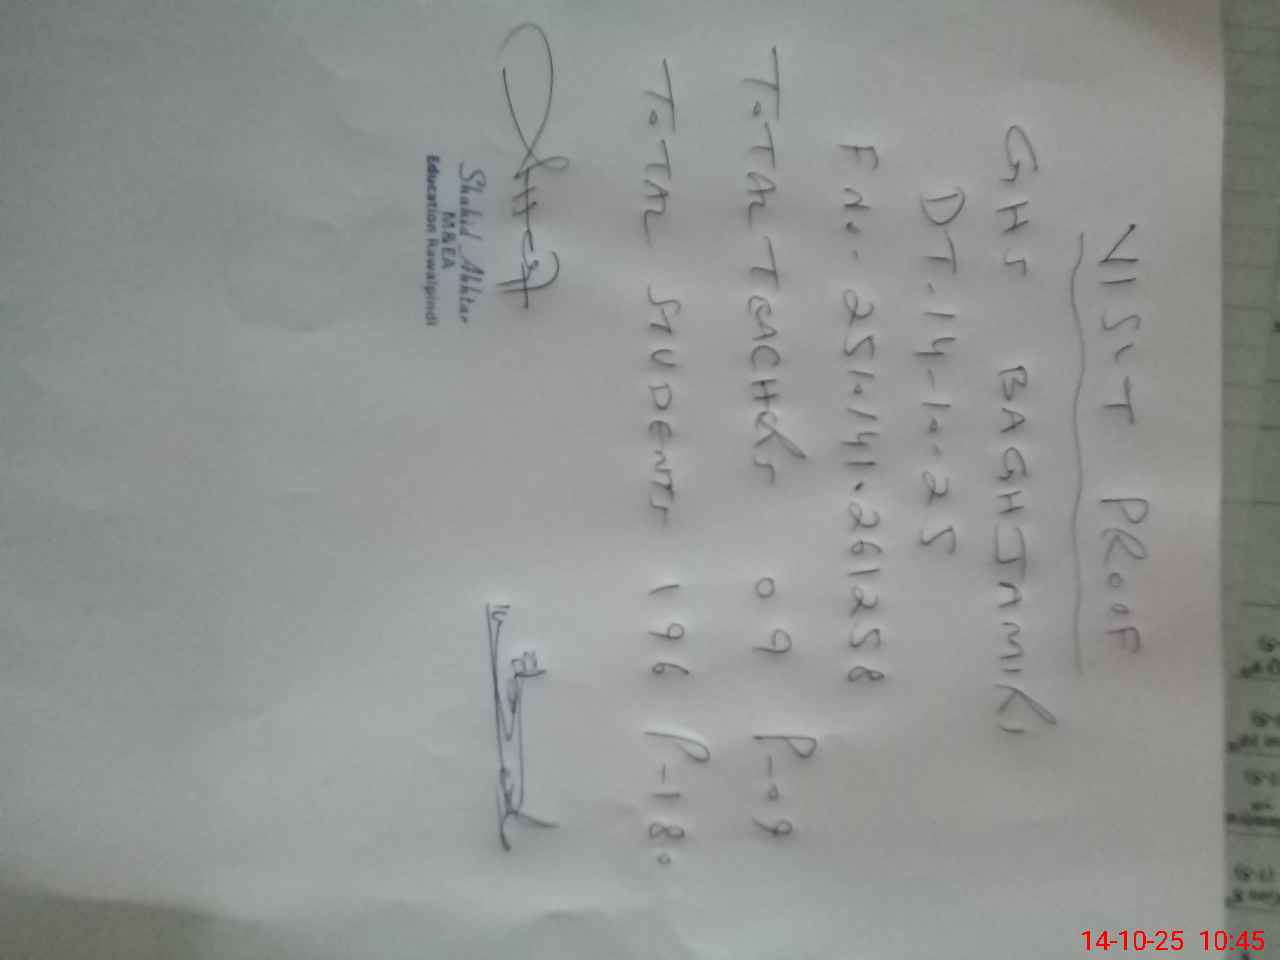 VISIT PROOF
GHS BAGHJAMIRI
DT. 14-10-25
F No. 2510141.261258
TOTAL TEACHERS 09 P-09
TOTAL STUDENTS 196 P-180
Shahid Akhtar
M&EA
Education Rawalpindi
14-10-25 10:45